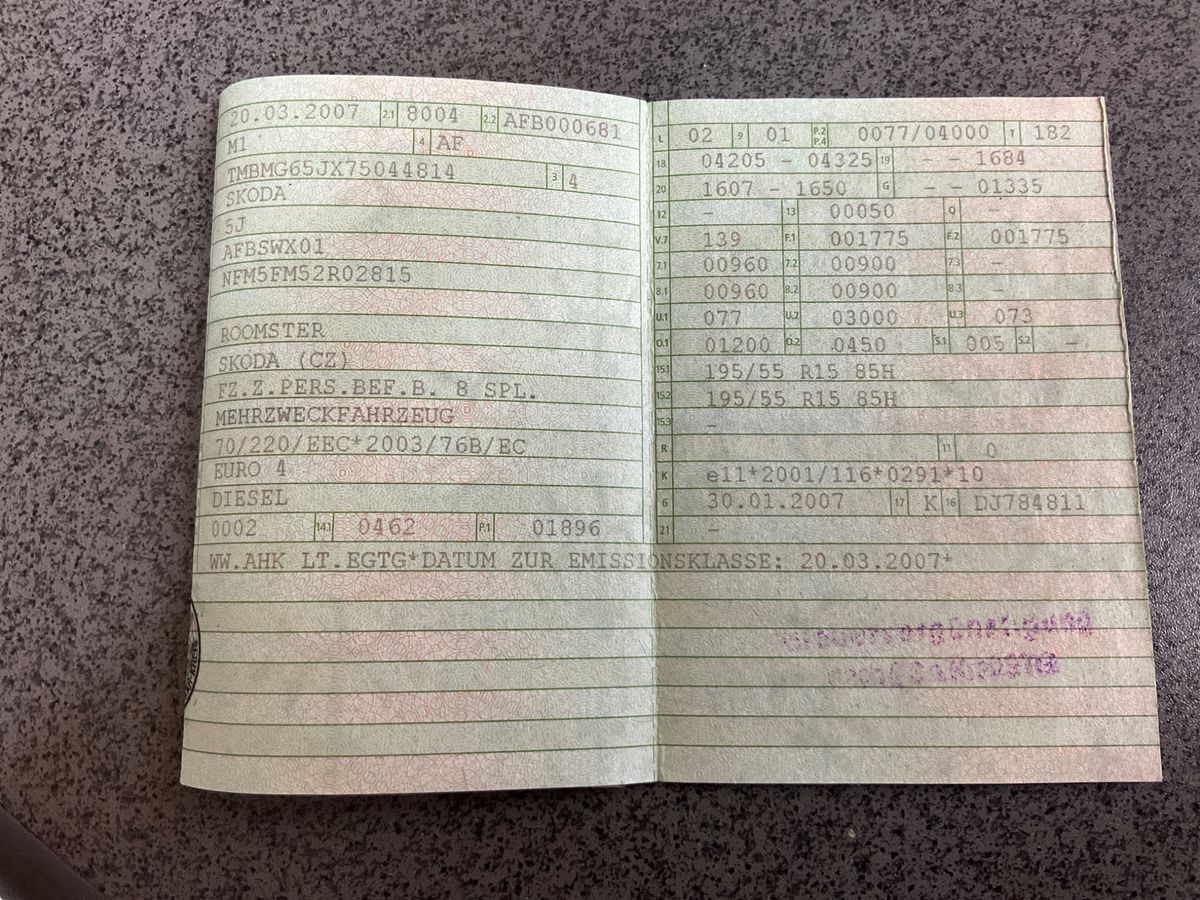 20.03.2007 2.1 8004 2.2 AFB000681
M1 4 AF
TMBMG65JX75044814 3 4
SKODA
5J
AFBSWX01
NFM5FM52R02815
ROOMSTER
SKODA (CZ)
FZ.Z.PERS.BEF.B. 8 SPL.
MEHRZWECKFAHRZEUG
70/220/EEC*2003/76B/EC
EURO 4
DIESEL
0002 14.1 0462 P.1 01896
L 02 9 01 P.2 P.4 0077/04000 T 182
18 04205 - 04325 19 - - 1684
20 1607 - 1650 G - - 01335
12 - 13 00050 Q -
V.7 139 F.1 001775 F.2 001775
7.1 00960 7.2 00900 7.3 -
8.1 00960 8.2 00900 8.3 -
U.1 077 U.2 03000 U.3 073
O.1 01200 O.2 0450 S.1 005 S.2 -
15.1 195/55 R15 85H
15.2 195/55 R15 85H
15.3 -
R 11 0
K e11*2001/116*0291*10
6 30.01.2007 17 K 16 DJ784811
21 -
WW.AHK LT.EGTG*DATUM ZUR EMISSIONSKLASSE: 20.03.2007*